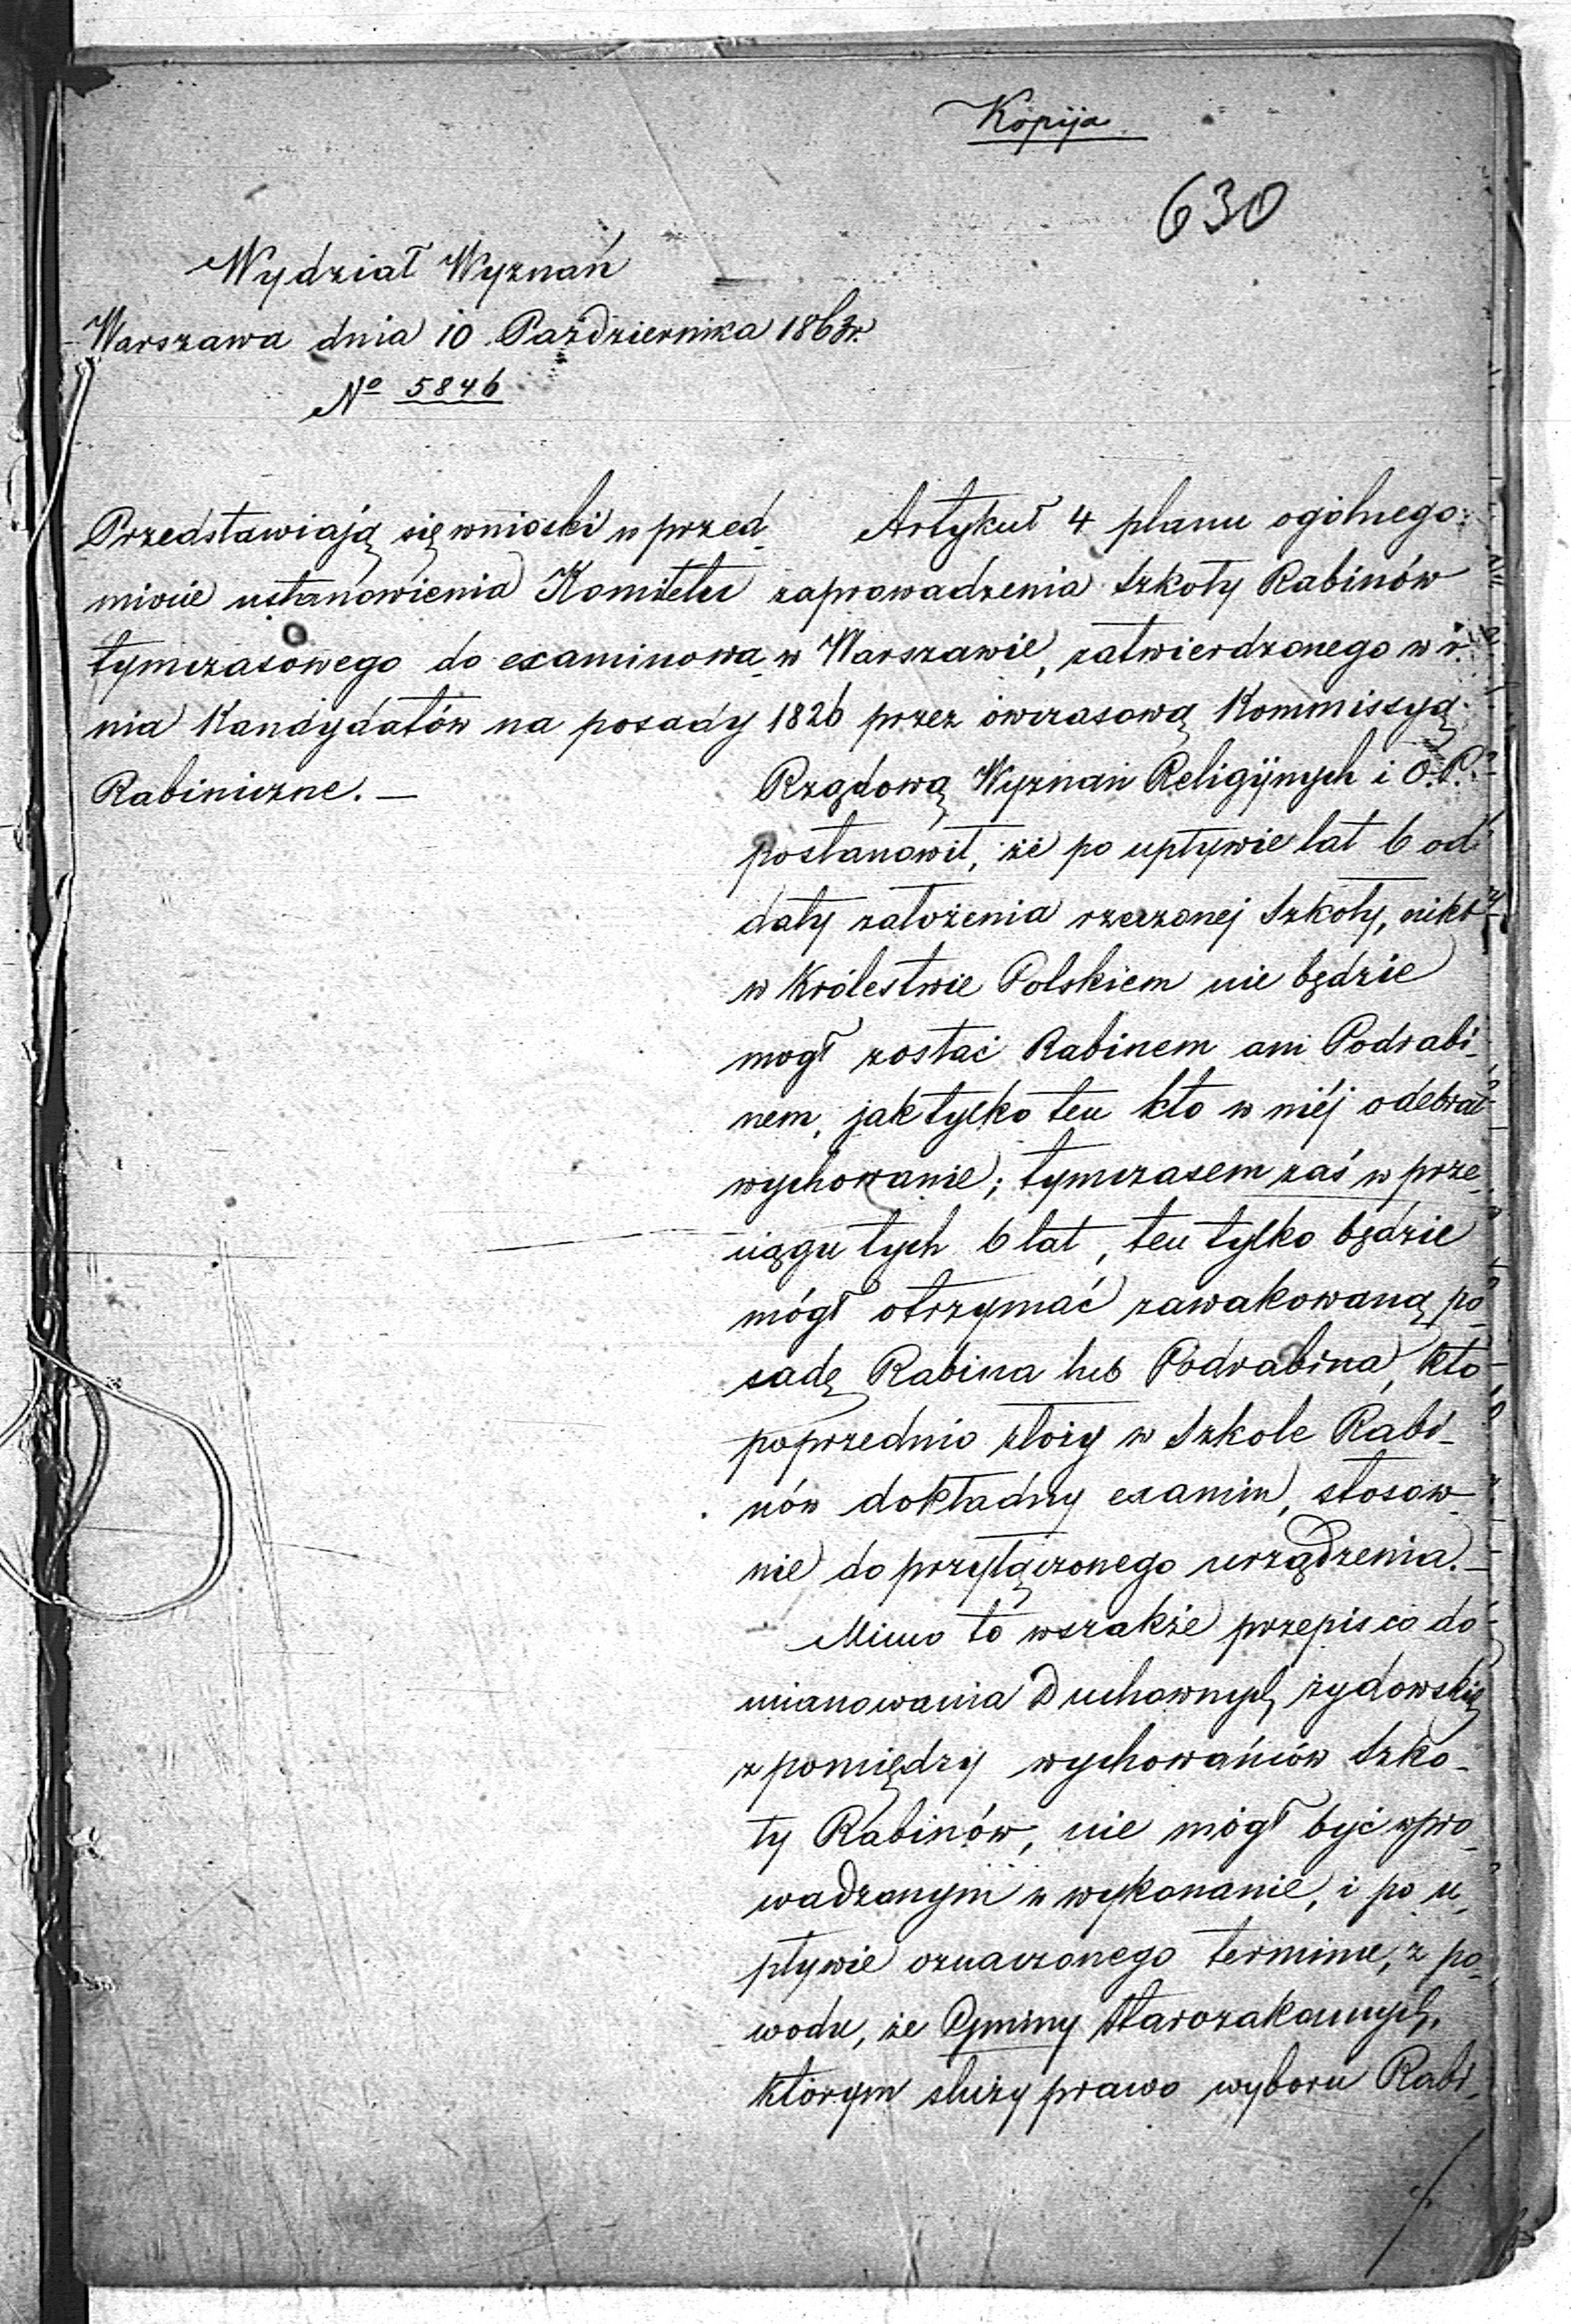 Kopija
630
Wydział Wyznań
Warszawa dnia 10 Października 1863r.
No 5846
Przedstawiają się wnioski w przed-
miocie ustanowienia Komitetu
tymczasowego do examinowa-
nia Kandydatów na posady
Rabiniczne. —
Artykuł 4 planu ogólnego
zaprowadzenia Szkoły Rabinów
w Warszawie, zatwierdzonego w r.
1826 przez ówczasową Kommissyą
Rządową Wyznań Religijnych i O. P.
postanowił, że po upływie lat 6 od
daty założenia rzeczonej Szkoły, nikt
w Królestwie Polskiem nie będzie
mogł zostać Rabinem ani Podrabi-
nem, jak tylko ten kto w niéj odebrał
wychowanie; tymczasem zaś w prze-
ciągu tych 6 lat, ten tylko będzie
mógł otrzymać zawakowaną po-
sadę Rabina lub Podrabina, kto
poprzednio złoży w Szkole Rabi-
nów dokładny examin, stosow-
nie do przyłączonego urządzenia. —
Mimo to wszakże przepis co do
mianowania Duchownych żydowskich
z pomiędzy wychowańców Szko-
ły Rabinów, nie mógł być wpro-
wadzonym w wykonanie, i po u-
pływie oznaczonego terminu, z po-
wodu, że Gminy Starozakonnych,
którym służy prawo wyboru Rabi-